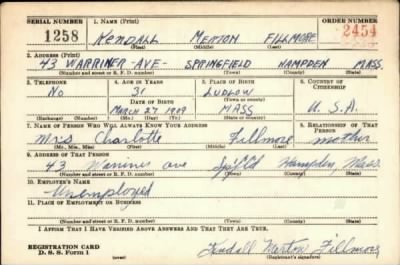 SERIAL NUMBER 1. NAME (Print) ORDER NUMBER
1258 KENDALL MERTON FILLMORE 2454
(First) (Middle) (Last)
2. ADDRESS (Print)
43 WARRINER-AVE- SPRINGFIELD HAMPDEN MASS.
(Number and street or R. F. D. number) (Town) (County) (State)
3. TELEPHONE 4. AGE IN YEARS 5. PLACE OF BIRTH 6. COUNTRY OF CITIZENSHIP
No 31 LUDLOW
DATE OF BIRTH (Town or county)
MARCH 27 1909 MASS U.S.A.
(Exchange) (Number) (Mo.) (Day) (Yr.) (State or country)
7. NAME OF PERSON WHO WILL ALWAYS KNOW YOUR ADDRESS 8. RELATIONSHIP OF THAT PERSON
Mrs Charlotte Fillmore mother
(Mr., Mrs., Miss) (First) (Middle) (Last)
9. ADDRESS OF THAT PERSON
43 Warriner ave Sp'f'ld Hampden, Mass.
(Number and street or R. F. D. number) (Town) (County) (State)
10. EMPLOYER'S NAME
-Unemployed
11. PLACE OF EMPLOYMENT OR BUSINESS
(Number and street or R. F. D. number) (Town) (County) (State)
I AFFIRM THAT I HAVE VERIFIED ABOVE ANSWERS AND THAT THEY ARE TRUE.
REGISTRATION CARD
D. S. S. Form 1 Kendall Merton Fillmore
(Registrant's signature)